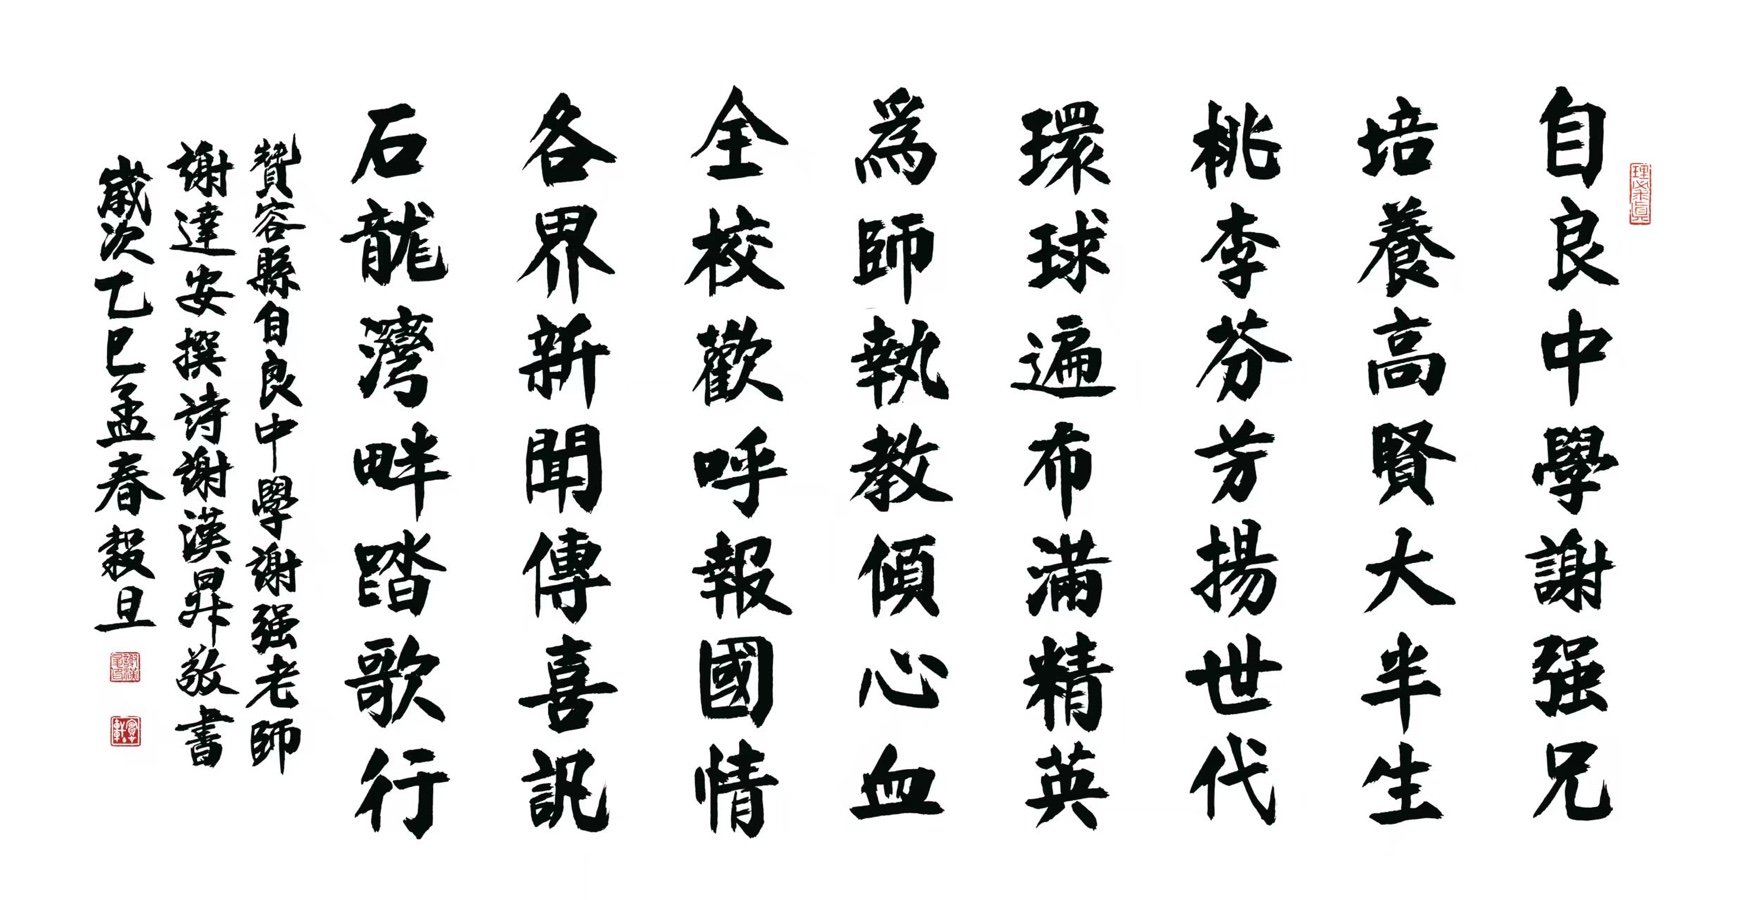 自良中學謝强兄
培養高賢大半生
桃李芬芳揚世代
環球遍布滿精英
爲師執教傾心血
全校歡呼報國情
各界新聞傳喜訊
石龍灣畔踏歌行
贊容縣自良中學謝强老師
謝達安撰詩謝漢昇敬書
歲次乙巳孟春穀旦